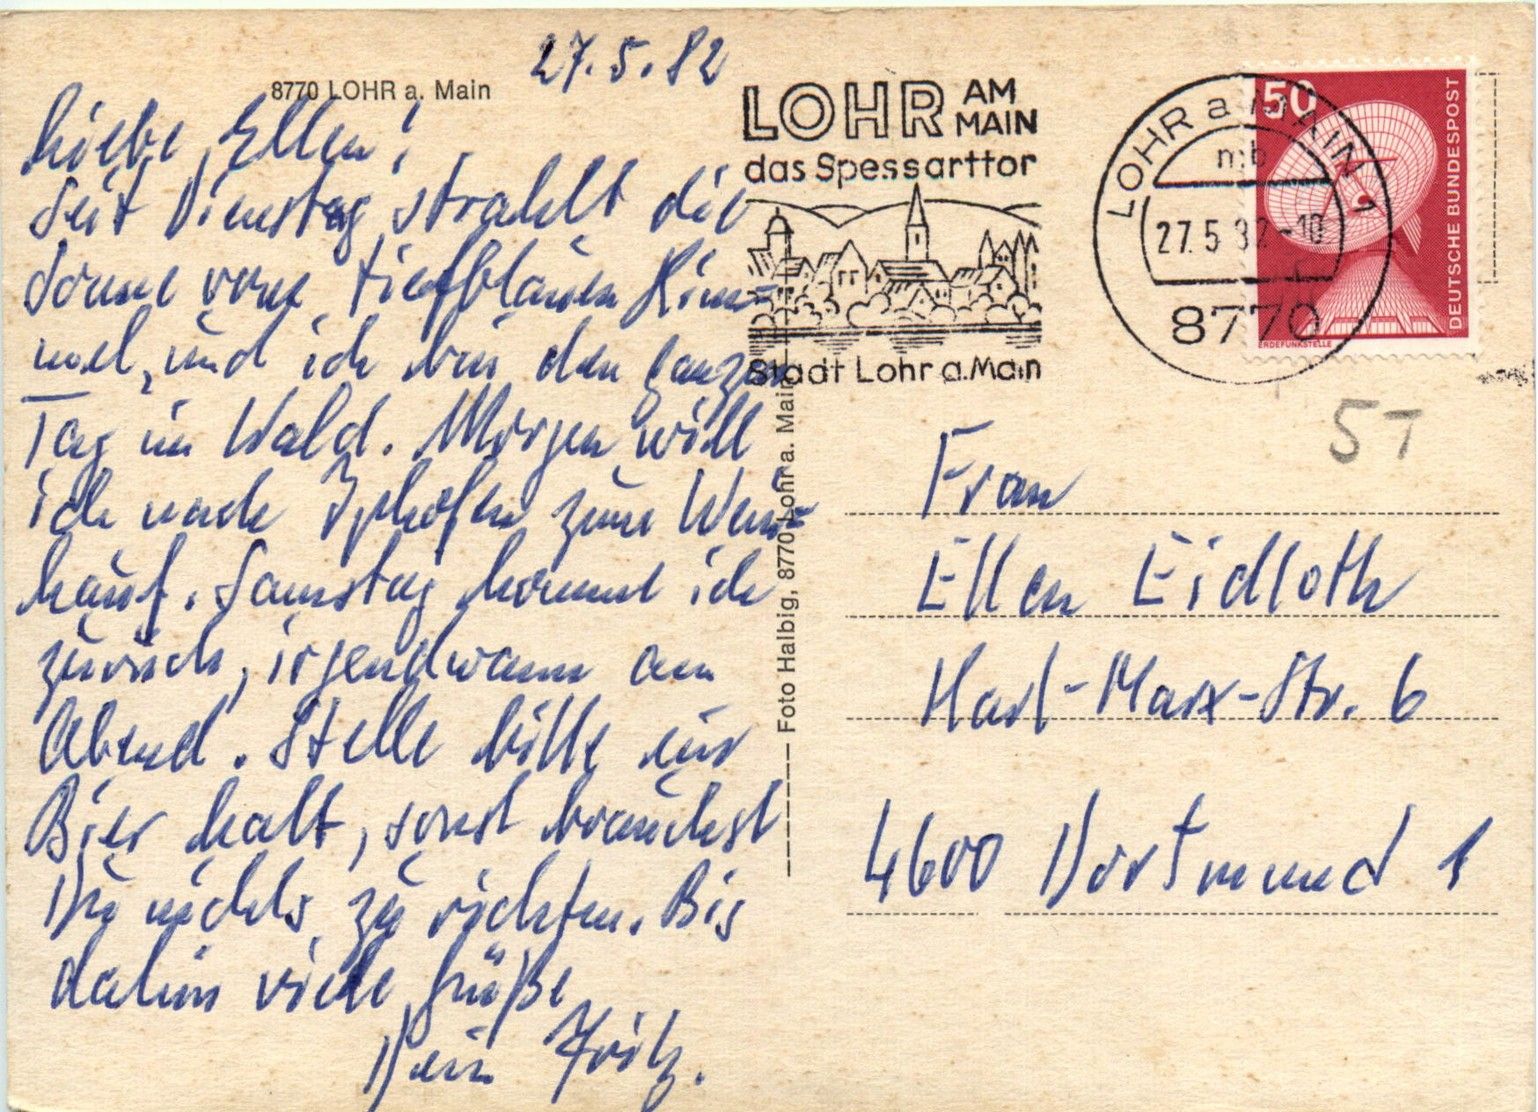 27.5.82
8770 LOHR a. Main
Liebe Ellen!
Seit Dienstag strahlt die
Sonne vom tiefblauen Him-
mel, und ich bin den ganzen
Tag im Wald. Morgen will
ich nach Iphofen zum Wein-
kauf. Samstag komme ich
zurück, irgendwann am
Abend. Stelle bitte nur
Bier kalt, sonst brauchst
Du nichts zu richten. Bis
dahin viele Grüße
Dein Fritz.
Foto Halbig, 8770 Lohr a. Main
LOHR AM MAIN
das Spessarttor
Stadt Lohr a. Main
LOHR a MAIN 1
mb
27.5.82-10
8770
50
DEUTSCHE BUNDESPOST
ERDEFUNKSTELLE
5T
Frau
Ellen Eidloth
Karl-Marx-Str. 6
4600 Dortmund 1